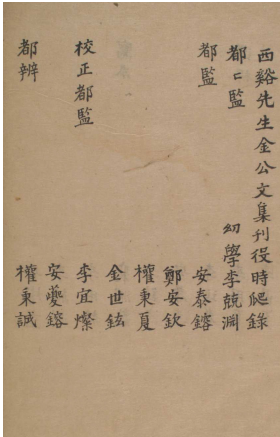 西谿先生金公文集刊役時爬錄
都〻監　幼學李兢淵
都監　安泰鎔
鄭安欽
權秉夏
金世鉉
校正都監　李宜燦
安夔鎔
都辨　權秉誠